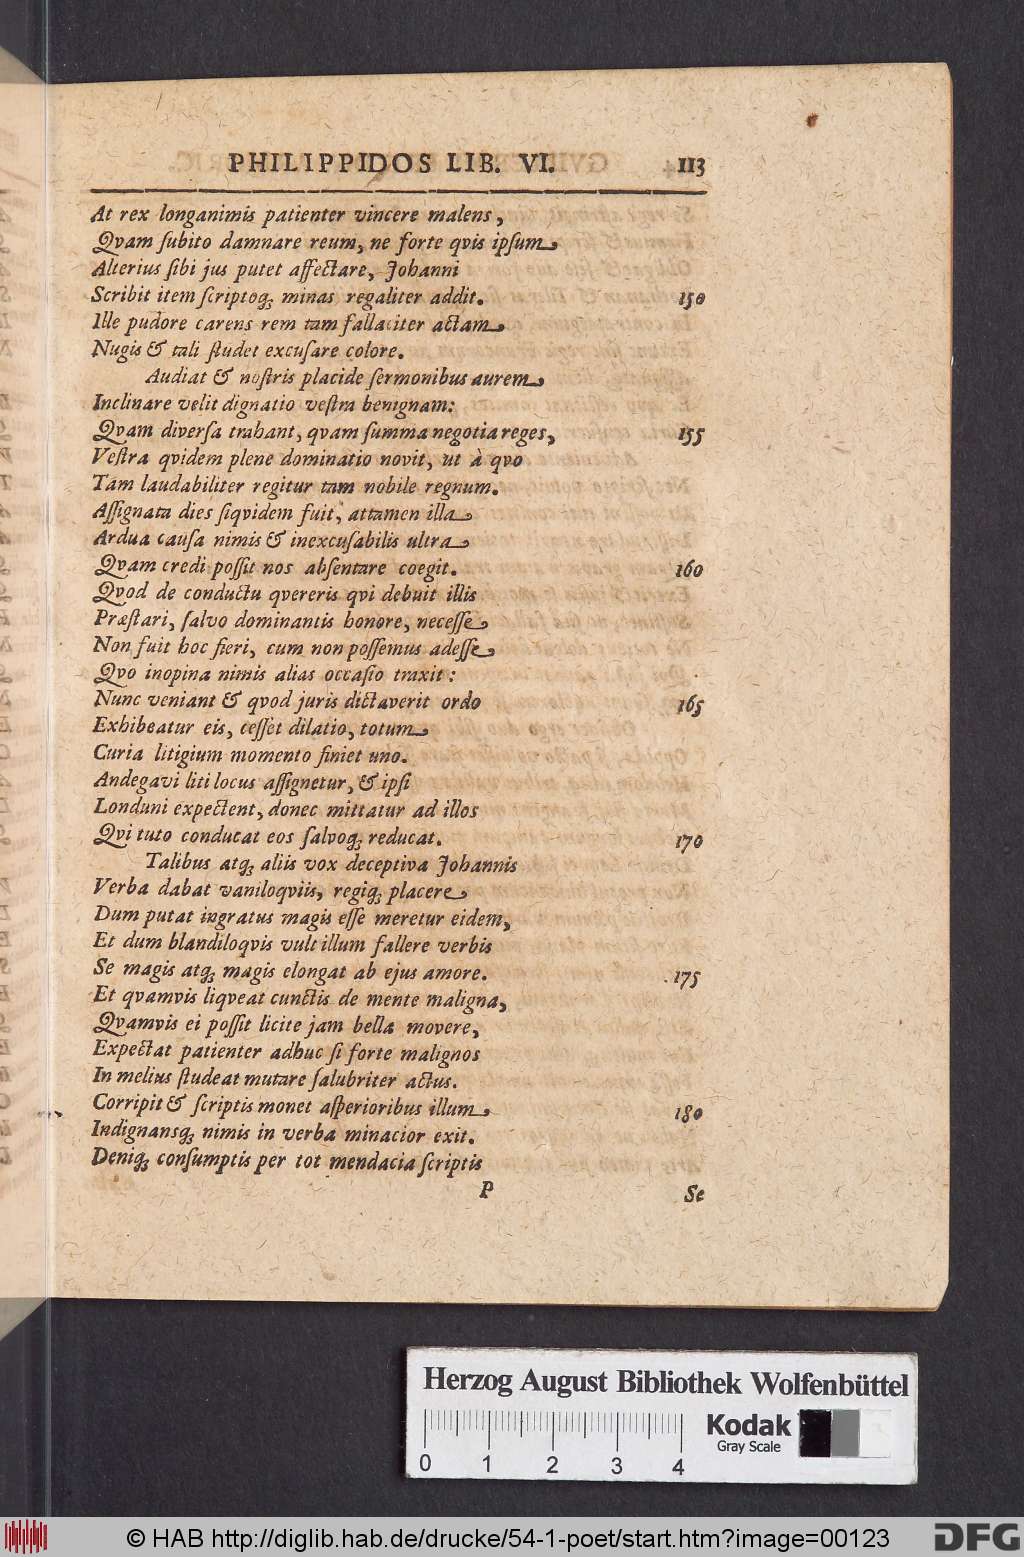 PHILIPPIDOS LIB. VI. 113
At rex longanimis patienter vincere malens,
Qvam ſubito damnare reum, ne forte qvis ipſum
Alterius ſibi jus putet affectare, Johanni
Scribit item ſcriptoq; minas regaliter addit. 150
Ille pudore carens rem tam fallaciter actam
Nugis & tali ſtudet excuſare colore.
Audiat & noſtris placide ſermonibus aurem
Inclinare velit dignatio veſtra benignam:
Qvam diverſa trahant, qvam ſumma negotia reges, 155
Veſtra qvidem plene dominatio novit, ut à qvo
Tam laudabiliter regitur tam nobile regnum.
Aſſignata dies ſiqvidem fuit, attamen illa
Ardua cauſa nimis & inexcuſabilis ultra
Qvam credi poſſit nos abſentare coegit. 160
Qvod de conductu qvereris qvi debuit illis
Præſtari, ſalvo dominantis honore, neceſſe
Non fuit hoc fieri, cum non poſſemus adeſſe
Qvo inopina nimis alias occaſio traxit:
Nunc veniant & qvod juris dictaverit ordo 165
Exhibeatur eis, ceſſet dilatio, totum
Curia litigium momento finiet uno.
Andegavi liti locus aſſignetur, & ipſi
Londuni expectent, donec mittatur ad illos
Qvi tuto conducat eos ſalvoq; reducat. 170
Talibus atq; aliis vox deceptiva Johannis
Verba dabat vaniloqviis, regiq; placere
Dum putat ingratus magis eſſe meretur eidem,
Et dum blandiloqvis vult illum fallere verbis
Se magis atq; magis elongat ab ejus amore. 175
Et qvamvis liqveat cunctis de mente maligna,
Qvamvis ei poſſit licite jam bella movere,
Expectat patienter adhuc ſi forte malignos
In melius ſtudeat mutare ſalubriter actus.
Corripit & ſcriptis monet aſperioribus illum 180
Indignansq; nimis in verba minacior exit.
Deniq; conſumptis per tot mendacia ſcriptis
P Se
Herzog August Bibliothek Wolfenbüttel
Kodak
Gray Scale
0 1 2 3 4
© HAB http://diglib.hab.de/drucke/54-1-poet/start.htm?image=00123
DFG